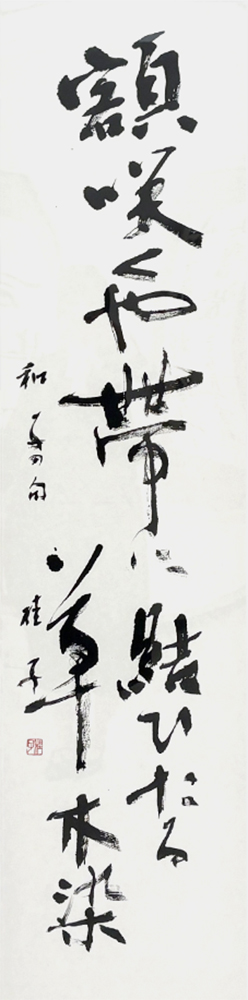 額咲や帯に結ひたる
草木染
和
句
桂子